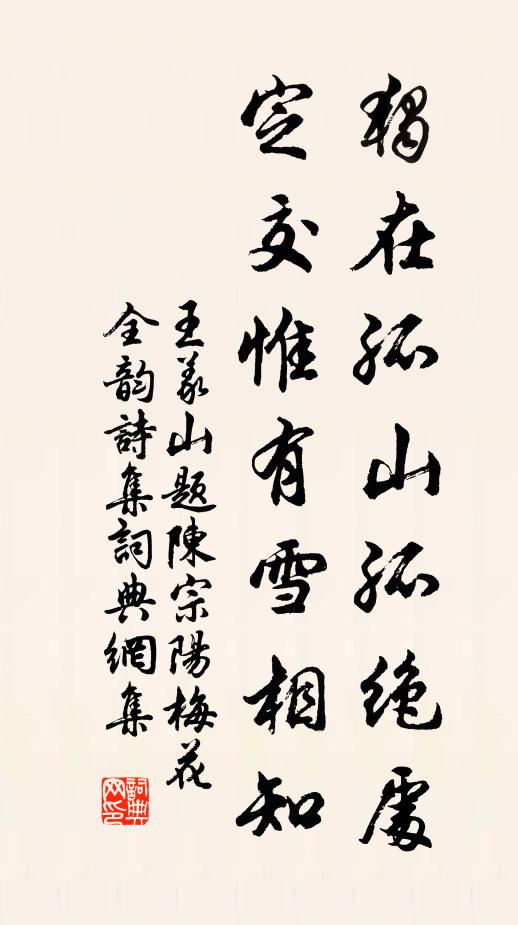 獨在孤山孤絶處
定交惟有雪相知
王義山題陳宗陽梅花
全韵詩集詞典網集
詞典网印